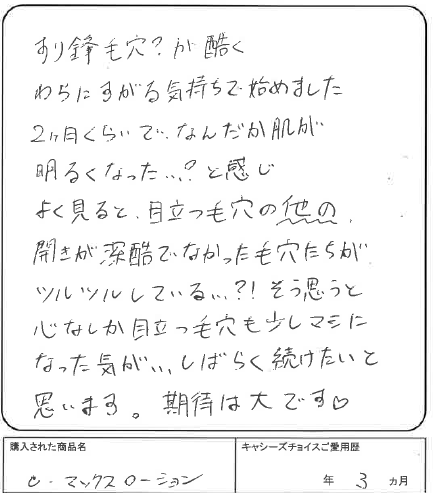 すり鉢毛穴?が酷く
わらにすがる気持ちで始めました
2ヶ月くらいで、なんだか肌が
明るくなった…?と感じ
よく見ると、目立つ毛穴の他の、
開きが深酷でなかった毛穴たちが
ツルツルしている…?!そう思うと
心なしか目立つ毛穴も少しマシに
なった気が…、しばらく続けたいと
思います。期待は大です♡
購入された商品名
キャシーズチョイスご愛用歴
C・マックスローション
年 3 カ月